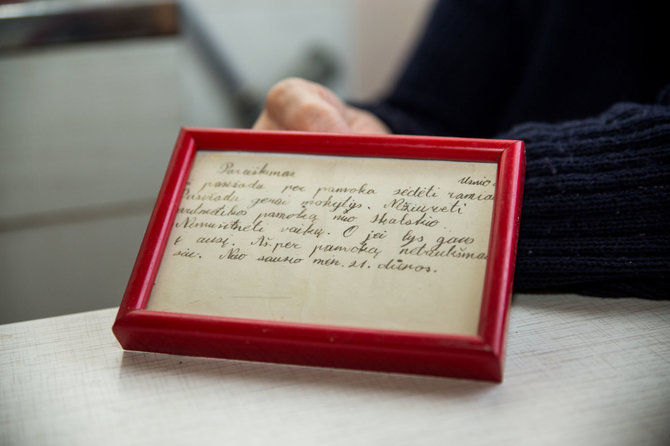 Paraiškimas Usnio
pasižadu per pamoka sėdėti ramiai
Pasižadu gerai mokytys. Nežiurėti
aritmetikos pamoką nuo skatskio
Nemuštrėti vaikų. O jei tys gaus
į ausę. Aš per pamoką nebraukšmas
siu. Nuo sausio mėn. 21. dūnos.